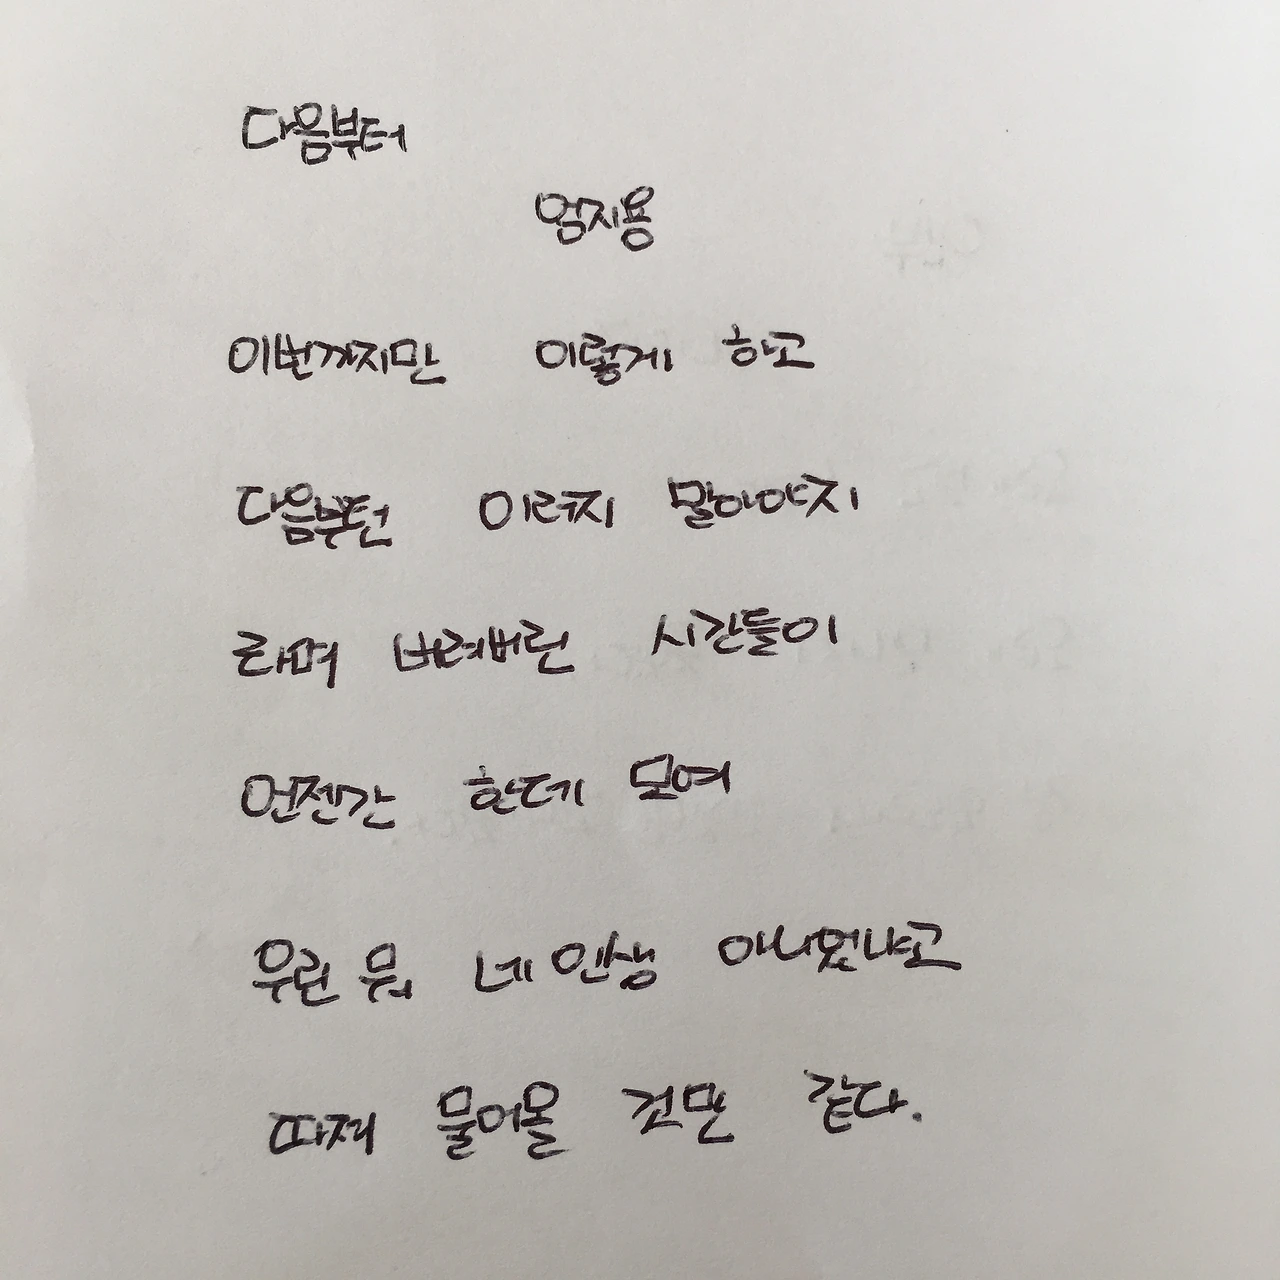 다음부터
엄지용
이번까지만 이렇게 하고
다음부턴 이러지 말아야지
라며 버려버린 시간들이
언젠간 한데 모여
우린 뭐 네 인생 아니었냐고
따져 물어올 것만 같다.